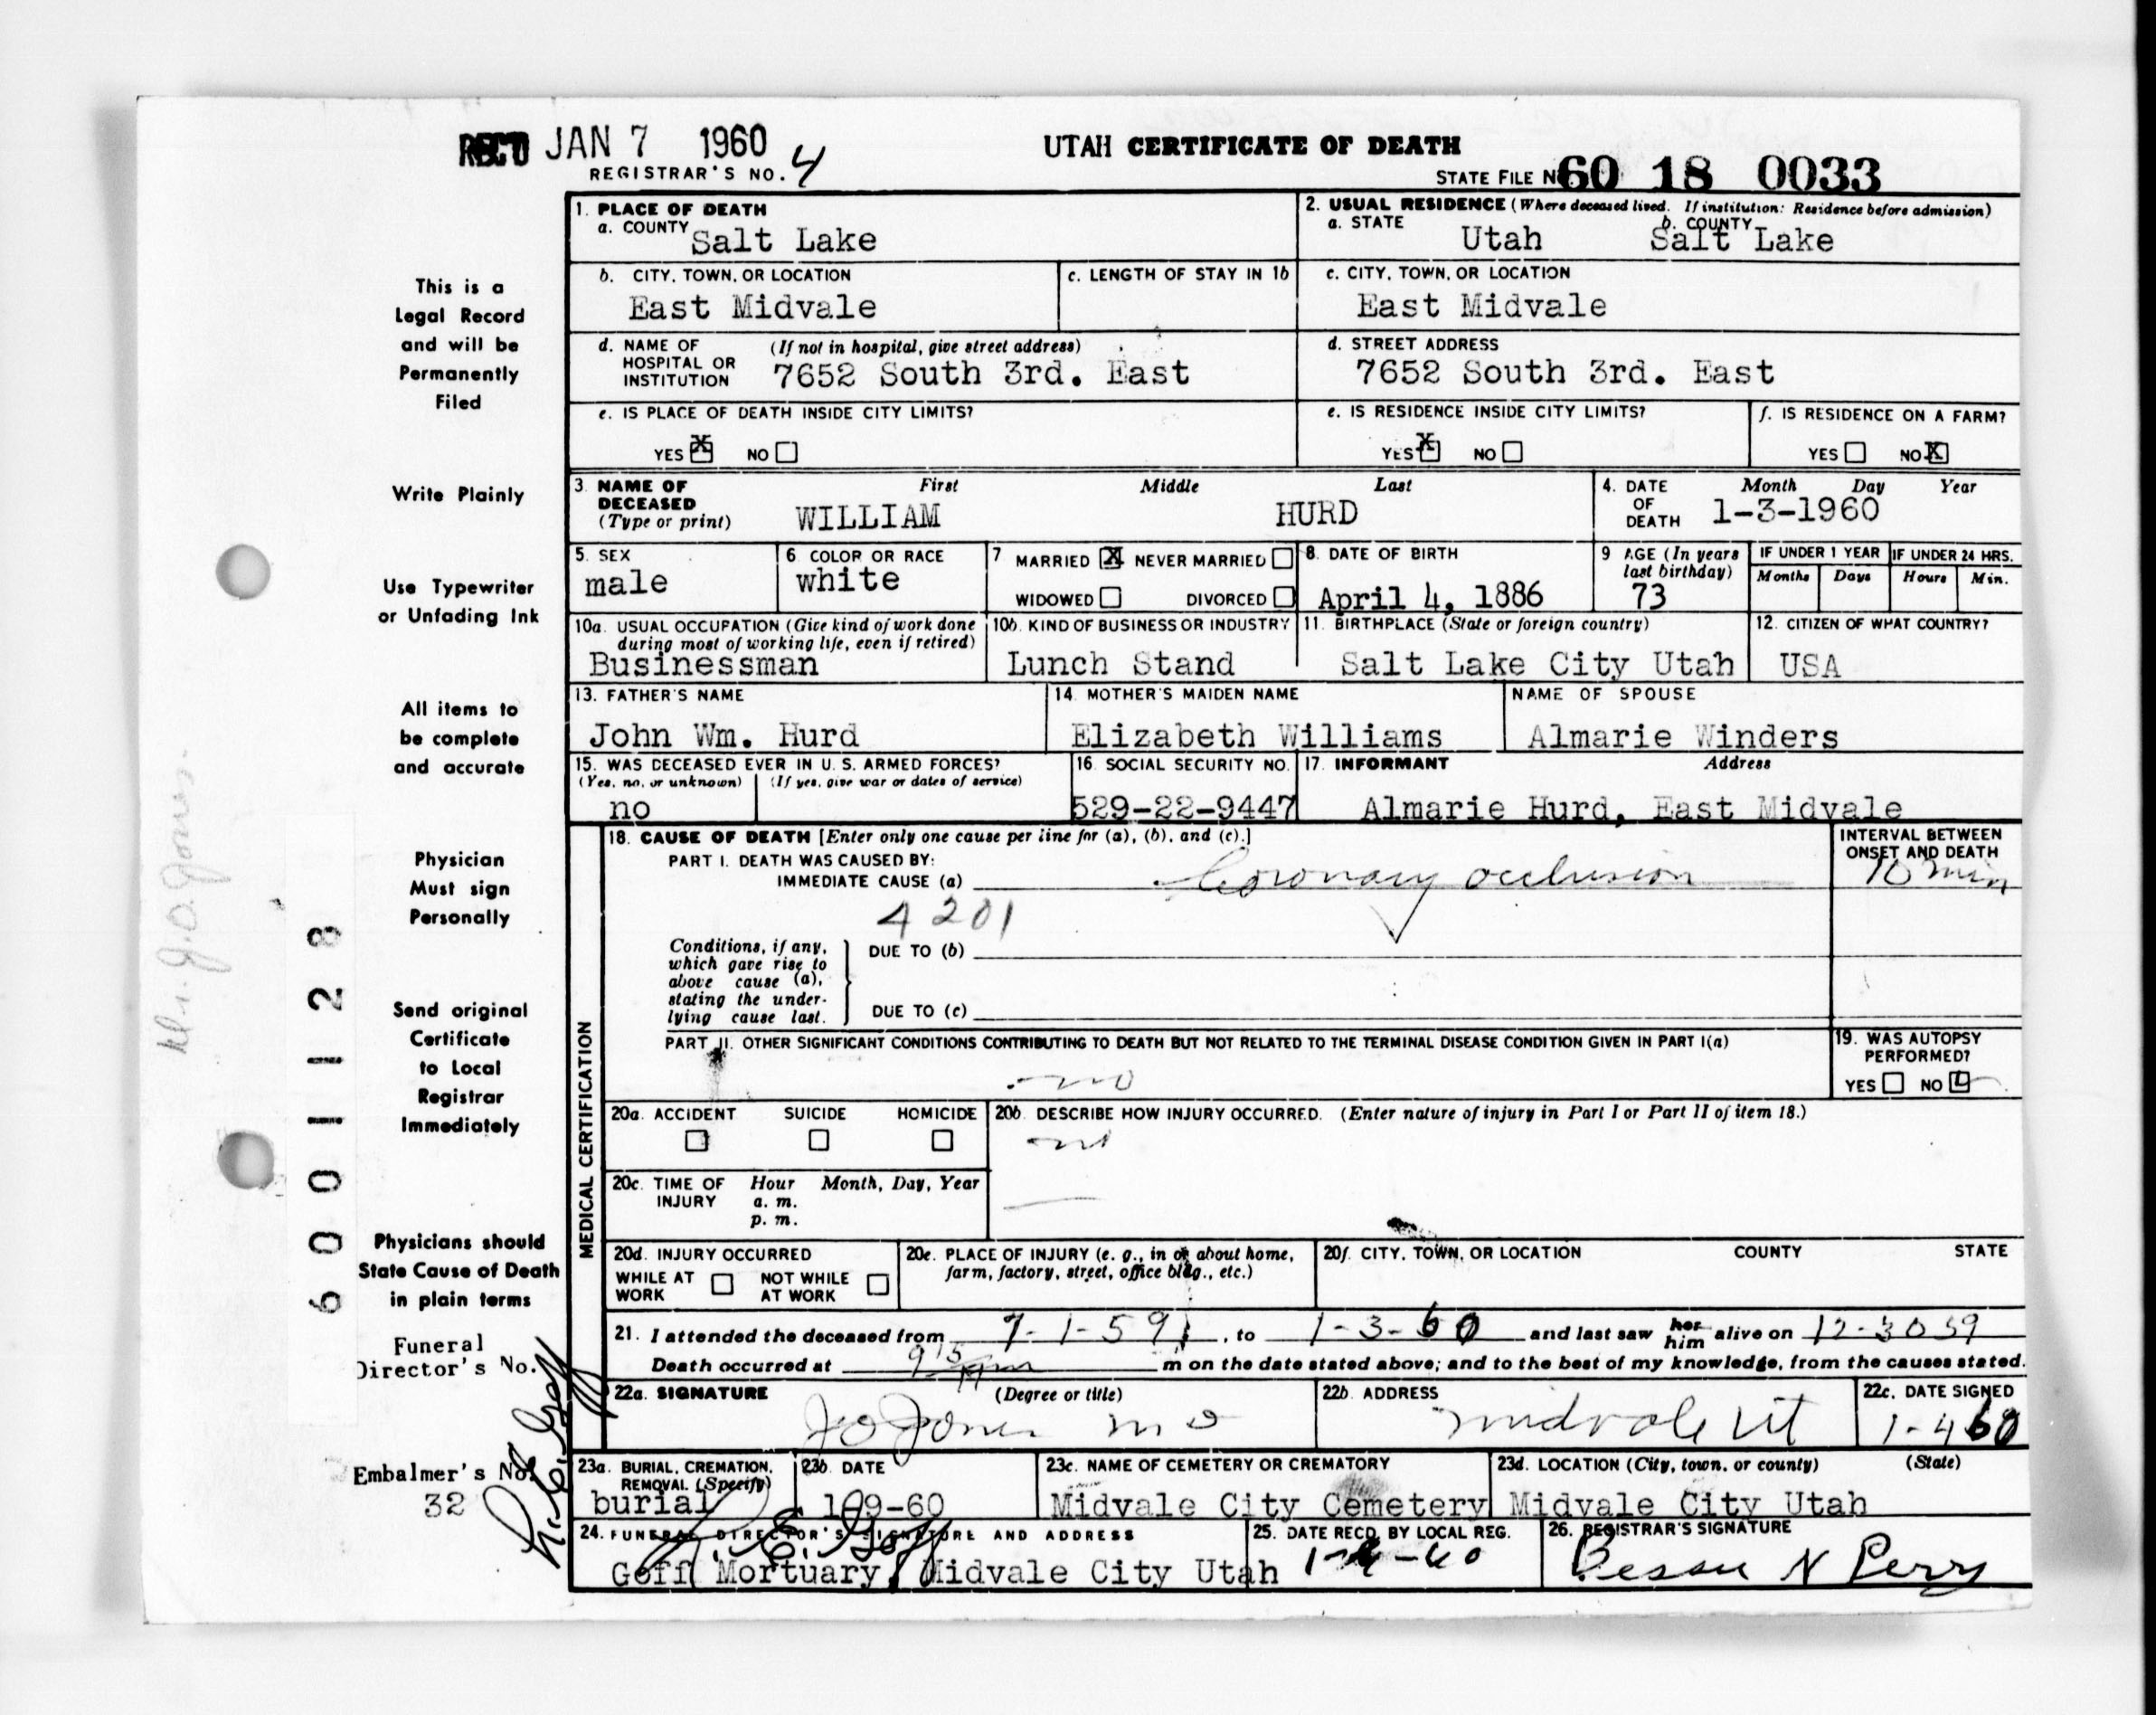 REC'D JAN 7 1960
REGISTRAR'S NO. 4
UTAH CERTIFICATE OF DEATH
STATE FILE NO. 60 18 0033
1. PLACE OF DEATH
a. COUNTY Salt Lake
2. USUAL RESIDENCE (Where deceased lived. If institution: Residence before admission)
a. STATE Utah b. COUNTY Salt Lake
b. CITY, TOWN, OR LOCATION East Midvale
c. LENGTH OF STAY IN 1b
c. CITY, TOWN, OR LOCATION East Midvale
d. NAME OF HOSPITAL OR INSTITUTION (If not in hospital, give street address) 7652 South 3rd. East
d. STREET ADDRESS 7652 South 3rd. East
e. IS PLACE OF DEATH INSIDE CITY LIMITS?
YES X NO
e. IS RESIDENCE INSIDE CITY LIMITS?
YES X NO
f. IS RESIDENCE ON A FARM?
YES NO X
3. NAME OF DECEASED (Type or print) First Middle Last
WILLIAM HURD
4. DATE OF DEATH Month Day Year
1-3-1960
5. SEX male
6. COLOR OR RACE white
7 MARRIED X NEVER MARRIED
WIDOWED DIVORCED
8. DATE OF BIRTH April 4, 1886
9 AGE (In years last birthday) 73
IF UNDER 1 YEAR Months Days
IF UNDER 24 HRS. Hours Min.
10a. USUAL OCCUPATION (Give kind of work done during most of working life, even if retired)
Businessman
10b. KIND OF BUSINESS OR INDUSTRY
Lunch Stand
11. BIRTHPLACE (State or foreign country)
Salt Lake City Utah
12. CITIZEN OF WHAT COUNTRY?
USA
13. FATHER'S NAME
John Wm. Hurd
14. MOTHER'S MAIDEN NAME
Elizabeth Williams
NAME OF SPOUSE
Almarie Winders
15. WAS DECEASED EVER IN U. S. ARMED FORCES?
(Yes, no, or unknown) (If yes, give war or dates of service)
no
16. SOCIAL SECURITY NO.
529-22-9447
17. INFORMANT Address
Almarie Hurd, East Midvale
MEDICAL CERTIFICATION
18. CAUSE OF DEATH [Enter only one cause per line for (a), (b), and (c).]
PART I. DEATH WAS CAUSED BY:
IMMEDIATE CAUSE (a) Coronary occlusion
INTERVAL BETWEEN ONSET AND DEATH
10 min
4201
Conditions, if any, which gave rise to above cause (a), stating the underlying cause last.
DUE TO (b)
DUE TO (c)
PART II. OTHER SIGNIFICANT CONDITIONS CONTRIBUTING TO DEATH BUT NOT RELATED TO THE TERMINAL DISEASE CONDITION GIVEN IN PART I(a)
no
19. WAS AUTOPSY PERFORMED?
YES NO
20a. ACCIDENT SUICIDE HOMICIDE
20b. DESCRIBE HOW INJURY OCCURRED. (Enter nature of injury in Part I or Part II of item 18.)
20c. TIME OF INJURY Hour Month, Day, Year
a. m.
p. m.
20d. INJURY OCCURRED
WHILE AT WORK NOT WHILE AT WORK
20e. PLACE OF INJURY (e. g., in or about home, farm, factory, street, office bldg., etc.)
20f. CITY, TOWN, OR LOCATION COUNTY STATE
21. I attended the deceased from 7-1-59, to 1-3-60 and last saw her him alive on 12-30 59
Death occurred at 915 m on the date stated above; and to the best of my knowledge, from the causes stated.
22a. SIGNATURE (Degree or title)
J O Jones M D
22b. ADDRESS
Midvale Ut
22c. DATE SIGNED
1-4 60
23a. BURIAL, CREMATION, REMOVAL (Specify)
burial
23b. DATE
1-9-60
23c. NAME OF CEMETERY OR CREMATORY
Midvale City Cemetery
23d. LOCATION (City, town, or county) (State)
Midvale City Utah
24. FUNERAL DIRECTOR'S SIGNATURE AND ADDRESS
R. E. Goff
Goff Mortuary, Midvale City Utah
25. DATE RECD. BY LOCAL REG.
26. REGISTRAR'S SIGNATURE
Bessie N Perry
This is a
Legal Record
and will be
Permanently
Filed
Write Plainly
Use Typewriter
or Unfading Ink
All items to
be complete
and accurate
Physician
Must sign
Personally
Send original
Certificate
to Local
Registrar
Immediately
Physicians should
State Cause of Death
in plain terms
Funeral
Director's No.
Embalmer's No.
32
R. E. Goff
6001128
Dr. J. O. Jones